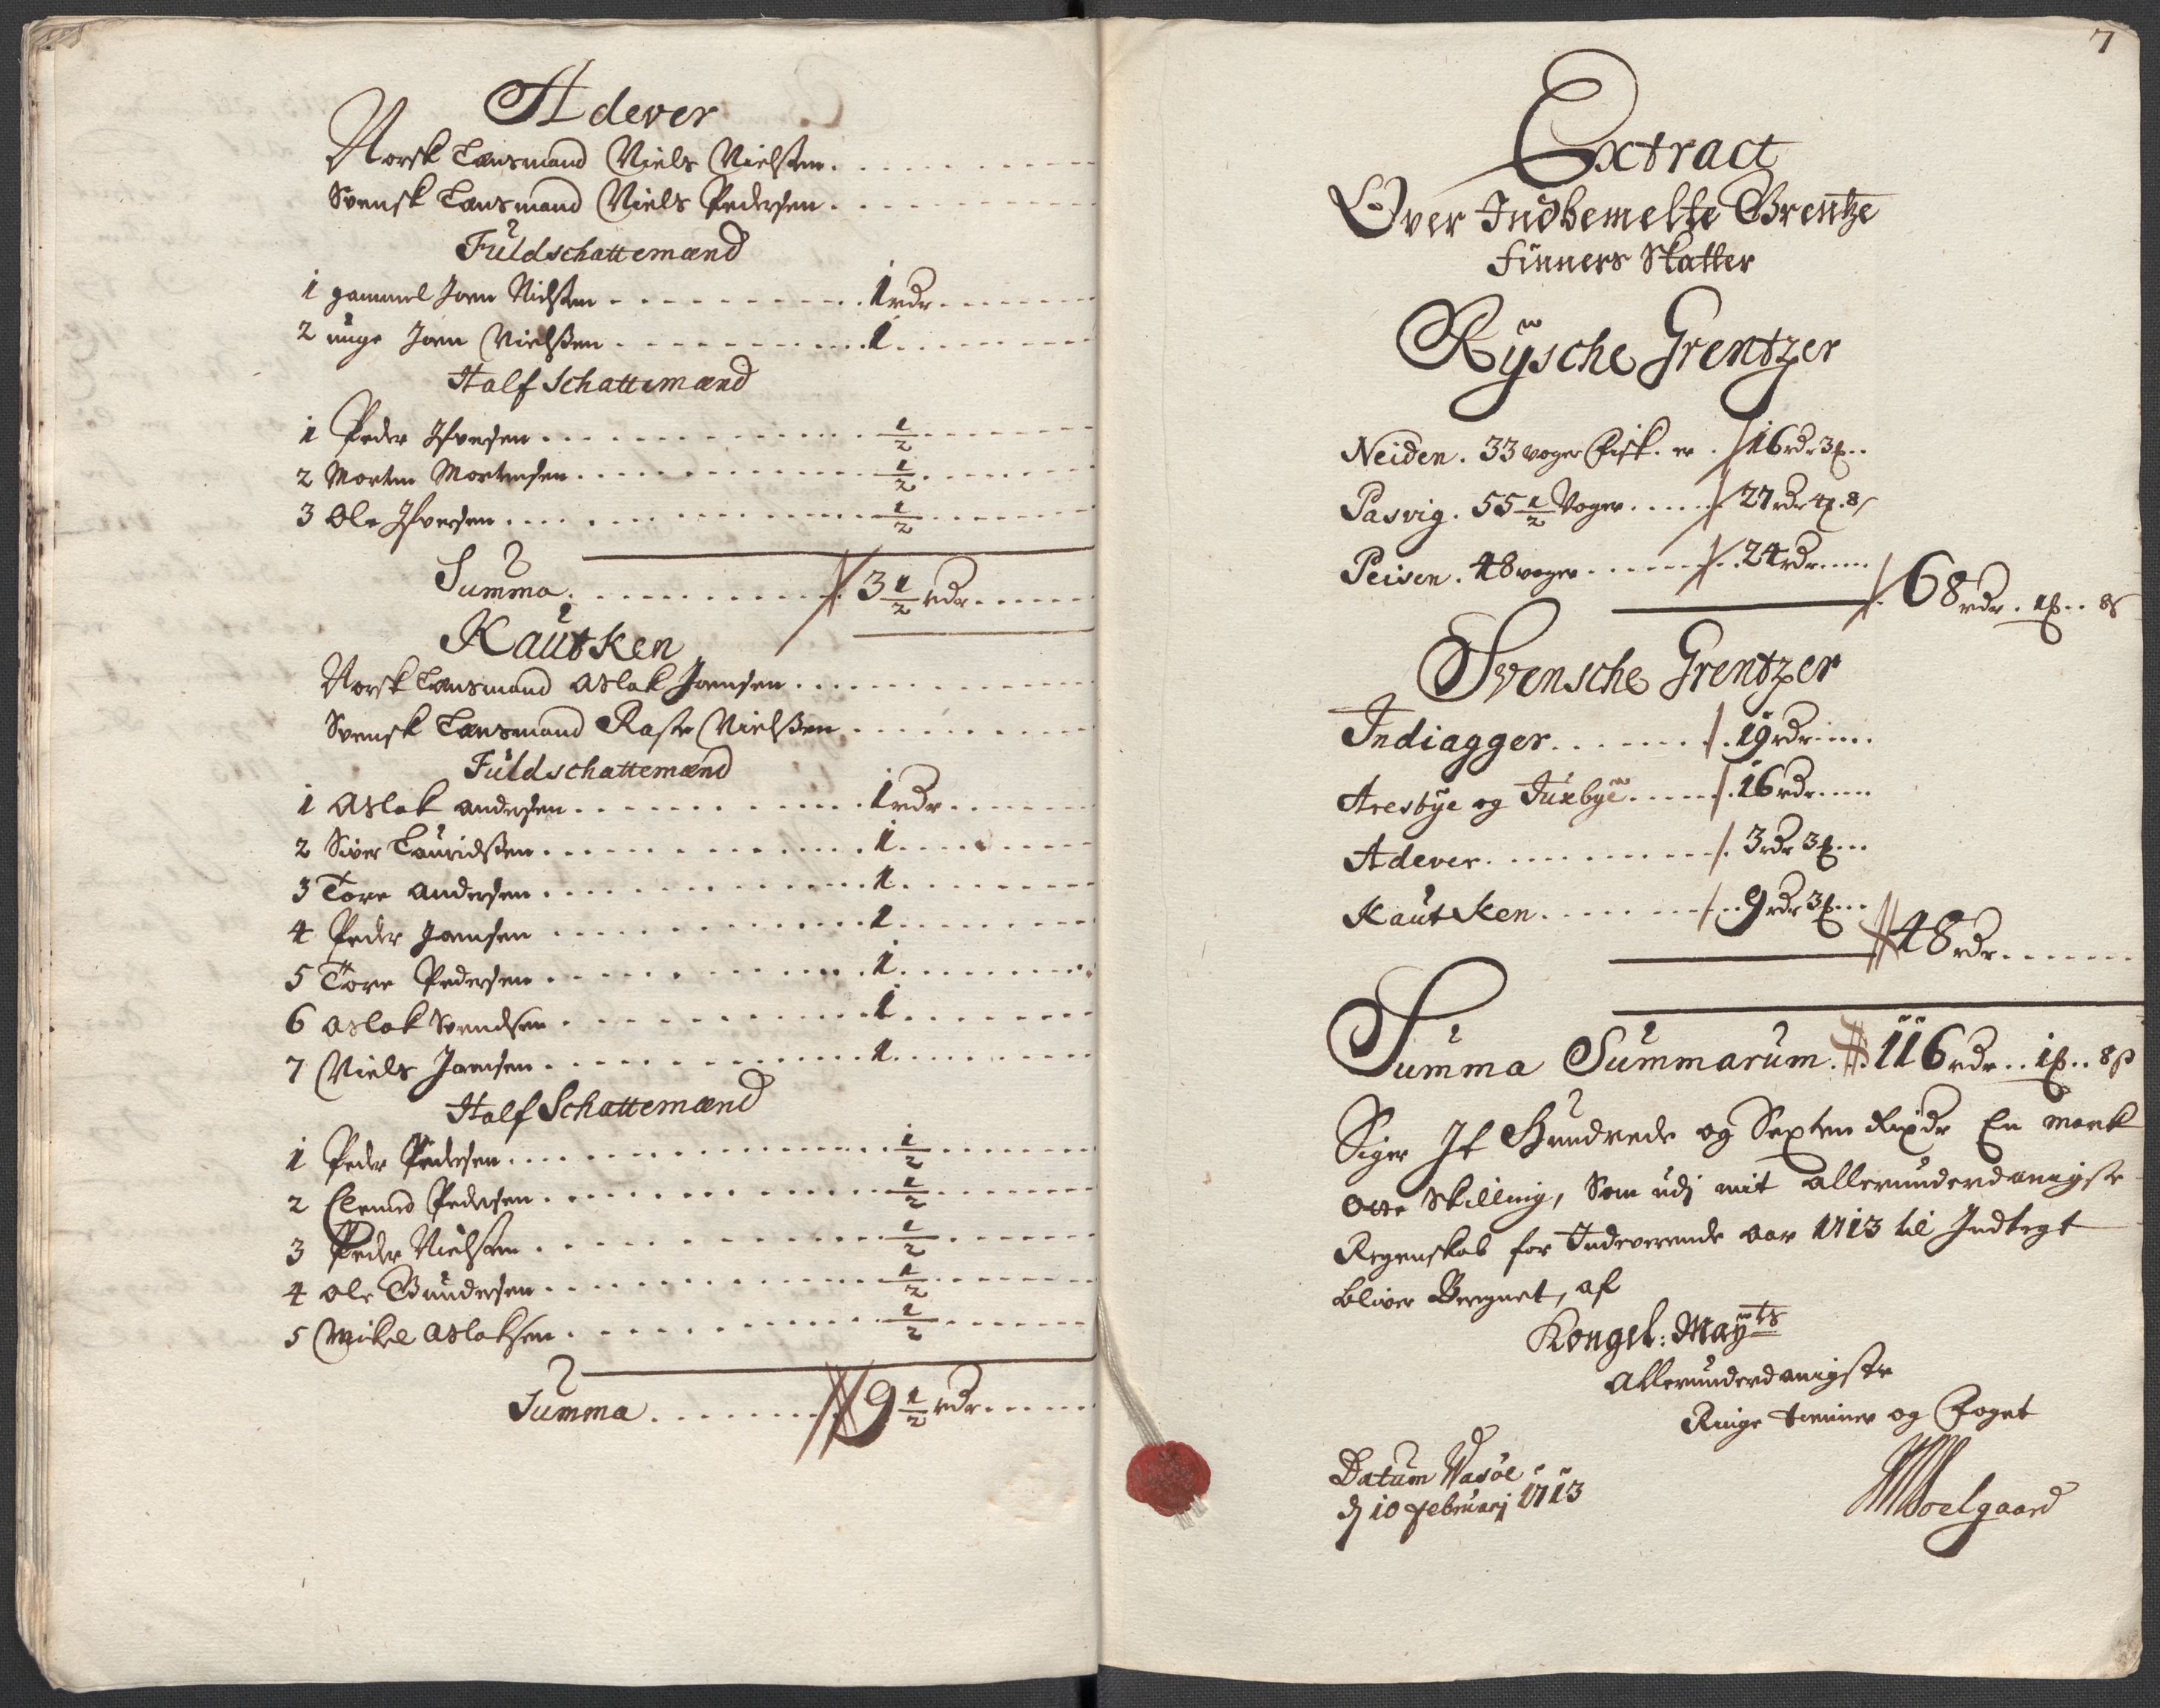 Adever
Norsk Lansmand Niels Nielsen
Svensk Lansmand Niels Pedersen
Fuldschattemænd
1 gammel Joen Nielsen 1 rdr
2 unge Joen Nielssen 1
Half Schattemænd
1 Peder Ifversen 1/2
2 Morten Mortensen 1/2
3 Ole Ifversen 1/2
Summa 3 1/2 rdr
Kautken
Norsk Lansmand Aslak Joensen
Svensk Lansmand Raste Nielssen
Fuldschattemænd
1 Aslak Andersen 1 rdr
2 Siver Lauridssen 1
3 Tore Andersen 1
4 Peder Joensen 1
5 Tore Pedersen 1
6 Aslak Svendsen 1
7 Niels Joensen 1
Half Schattemænd
1 Peder Pedersen 1/2
2 Clemed Pedersen 1/2
3 Peder Nielsen 1/2
4 Ole Gundersen 1/2
5 Mikel Aslaksen 1/2
Summa 9 1/2 rdr
7
Extract
Over Indbemelte Grentze
Finners Skatter
Rysche Grentzer
Neiden. 33 voger Fisk. er 16 rdr 3 ꝑ
Pasvig. 55 1/2 Voger 27 rdr 4 ꝑ. 8 s
Peisen. 48 voger 24 rdr
68 rdr. 1 ꝑ. 8 s
Svensche Grentzer
Indiagger 19 rdr
Aresbye og Juxbye 16 rdr
Adever 3 rdr 3 ꝑ
Kautken 9 rdr 3 ꝑ
48 rdr
Summa Summarum. 116 rdr. 1 ꝑ. 8 s
Siger It Hundrede og Sexten Rixdr En mark
Otte Skilling, Som udj mit allerunderdanigste
Regenskab for Indeverende Aar 1713 til Indtegt
bliver Beregnet, af
Kongel: Mayts
Allerunderdanigste
Ringe tienner og Foget
Datum Vasöe
d 10 Februarj 1713
Soelgaard